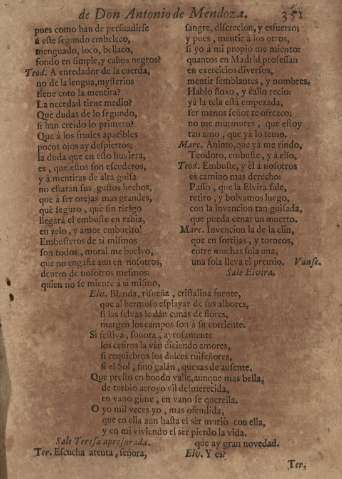 de Don Antonio de Mendoza. 351
pues como han de persuadirse
a este segundo embeleco,
menguado, loco, bellaco,
fondo en simple, y caños negros?
Teod. A enredador de la cuerda,
no de la lengua, mysterios
tiene coto la mentira?
La necedad tiene medio?
Que dudas de lo segundo,
si han creido lo primero?
Que à los frudes apacibles
pocos ojos ay despiertos;
la duda que en esto huviera,
es, que estos son
y à mentiras de alta guisa
no estaràn sus gustos hechos,
que à ser orejas mas grandes,
què seguro, què sin riesgo
llegarà el embuste en rabia,
en zelo, y amor embutido!
Embusteros de si mismos
son todos, mortal me huelvo,
que no engaña aun en nosotros,
dentro de nosotros mesmos:
quien no se miente à si mismo,
sangre, discrecion, y esfuerço;
y pues, mentir à los otros,
si yo à mi propio me miento
quantos en Madrid professan
en exercicios diversos,
mentir semblantes, y nombres.
Hablo floxo, y estilo recio:
yà la tela està empezada,
ser manos señor te ofrezco;
no me murmures, que estoy
tan amo, que yà lo temo.
Marc. Animo, que yà me rindo,
Teodoro, embuste, y à ello,
Teod. Embuste, y èl à nosotros
es camino mas derechos
Passo, que la Elvira sale,
retiro, y bolvamos luego,
con la invencion tan guisada,
que pueda cenar un muerto.
Marc. Invencion la de la clin,
que en sortijas, y torneos,
entre muchas sola una,
una sola lleva el premio. Vanse.
Sale Elvira.
Elv. Blanda, risueña, cristalina fuente,
que al hermoso esplayar de sus albores,
si las selvas le dàn cunas de flores,
margen los campos son à su corriente.
Si festiva, sonora, ayrosamente
los cefiros la vàn diciendo amores,
si requiebros los dulces ruiseñores,
si el Sol, fino galàn, quexas de ausente.
Que presto en hondo valle, aunque mas bella,
de turbio arroyo vil desmerecida,
en vano gime, en vano se querella.
O yo mil veces yo, mas ofendida,
que en ella aun hasta el ser muriò con ella,
y en mi viviendo el ser pierdo la vida.
Sale Teresa apresurada.
que ay gran novedad.
Ter. Escucha atenta, señora,
Elv. Y es?
Ter.